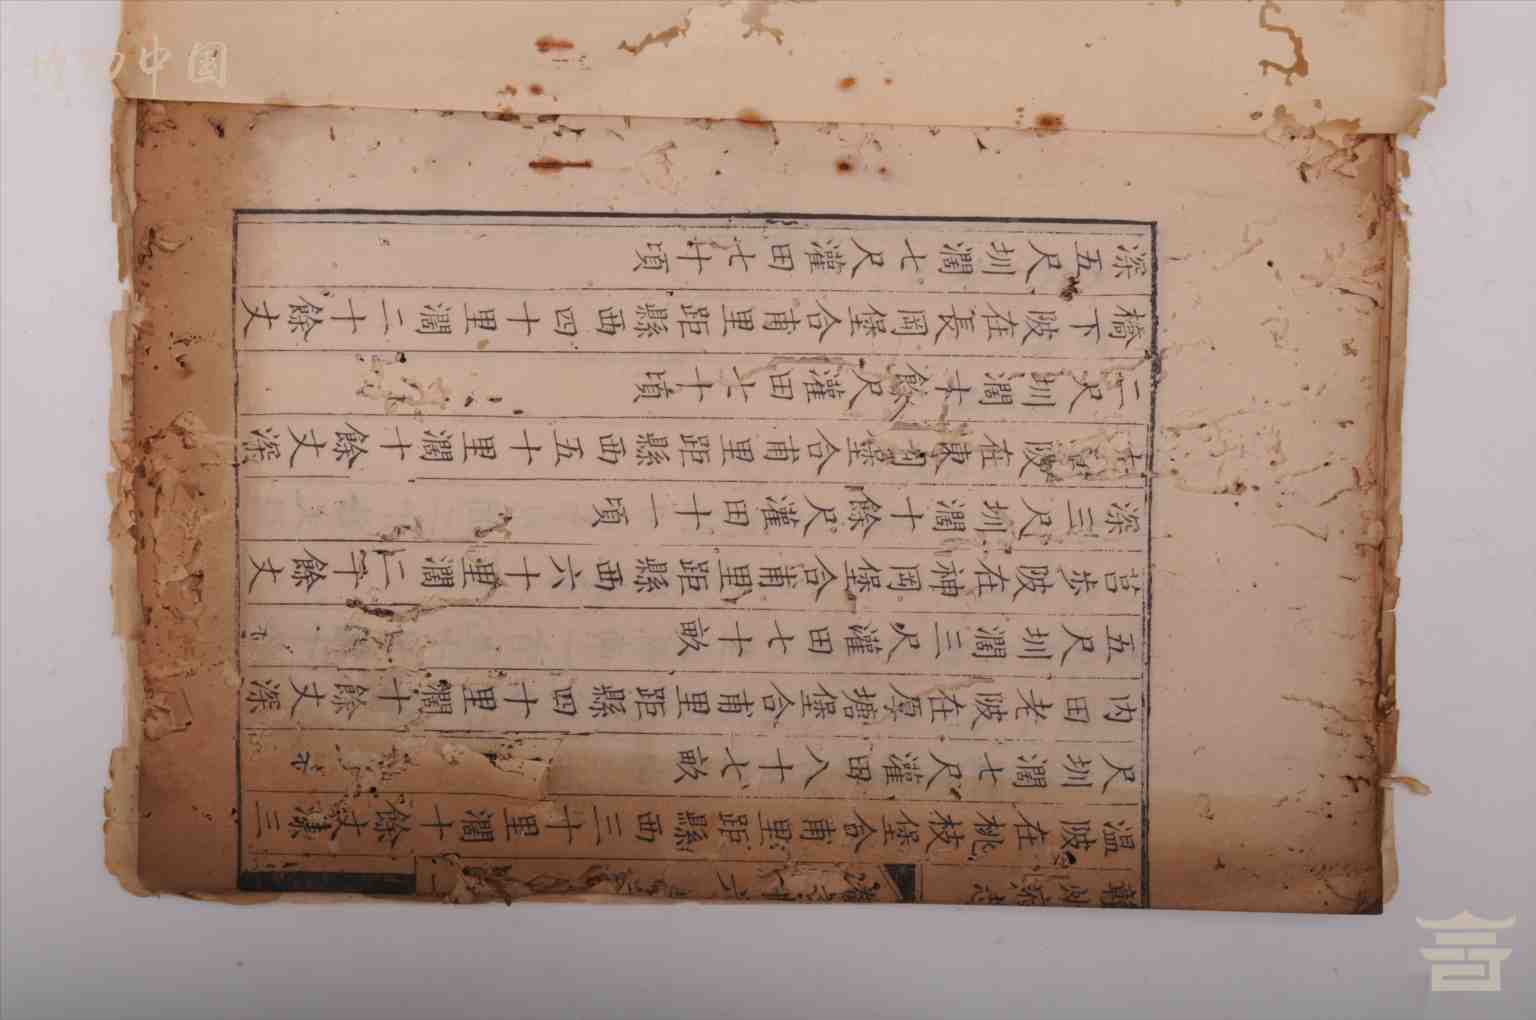 贛州府志
溫陂在桃枝堡合甫里距縣西三十里濶十餘丈深三
尺圳濶七尺灌田八十七畝
内田老陂在厚塘堡合甫里距縣四十里濶十餘丈深
五尺圳濶三尺灌田七十畝
莒步陂在神岡堡合甫里距縣西六十里濶二十餘丈
深三尺圳濶十餘尺灌田十一頃
陂在東堡合甫里距縣西五十里濶十餘丈深
二尺圳濶十餘尺灌田七十頃
橋下陂在長岡堡合甫里距縣西四十里濶二十餘丈
深五尺圳濶七尺灌田七十頃
博物中国